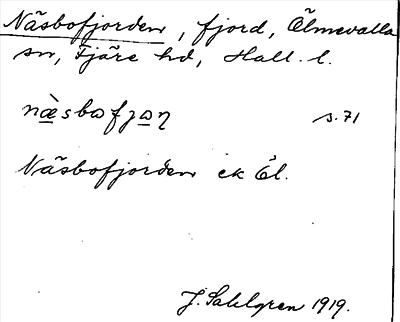 Näsbofjorden, fjord, Ölmevalla
sn, Fjäre hd, Hall. l.
næ̀sbofjoɳ s. 71
Näsbofjorden ek Öl.
J. Sahlgren 1919.